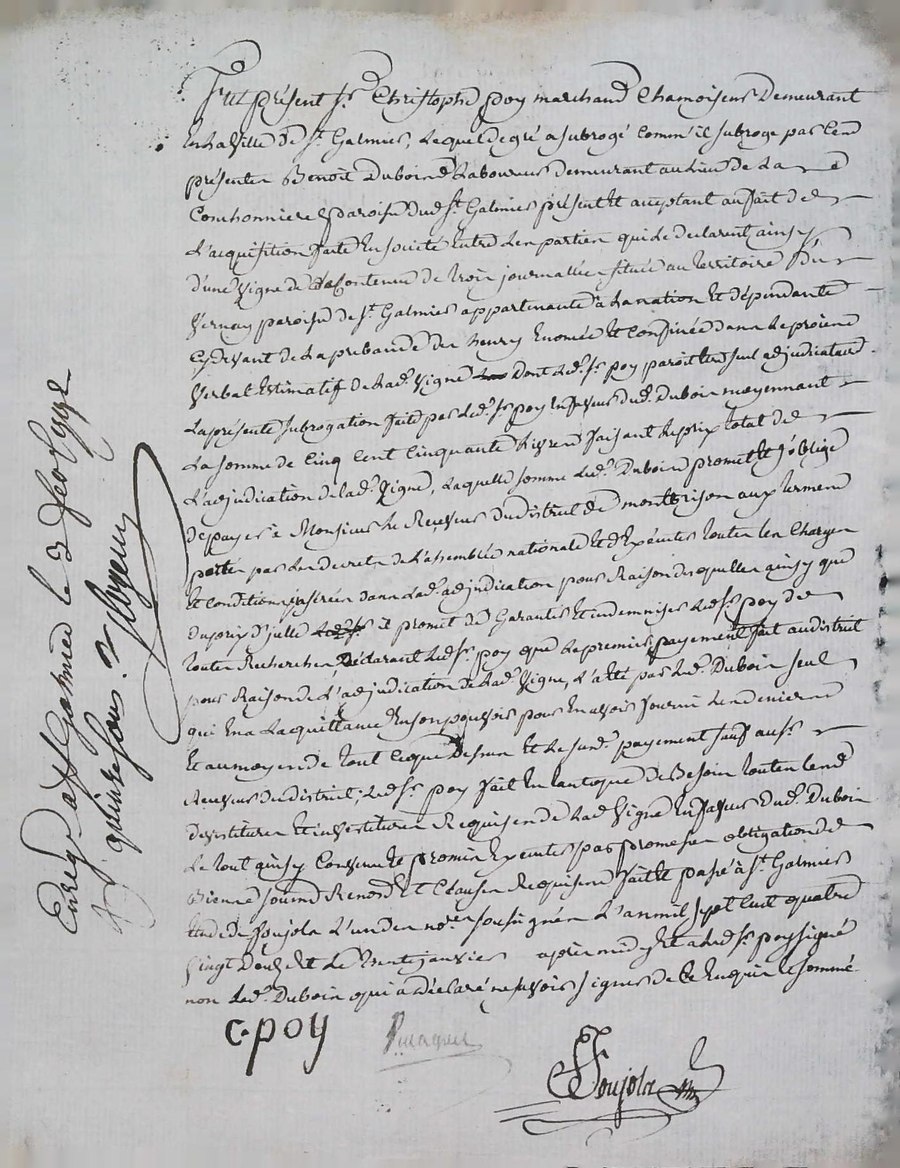 Fut présent Sr. Christophe poy marchand Chamoiseur Demeurant
en la Ville de St. Galmier, Lequel de gré a subrogé comm'il subroge par ces
présentes Benoit Dubois Laboureur demeurant au Lieu de La
Conhonniere paroisse dud. St. Galmier présent et acceptant au fait de
L'acquisition faite En société Entre Les parties qui Le declarent ainsy
d'une Vigne de la Contenue de trois journallées située au territoire Du
Vernay paroisse de St. Galmier appartenante à La nation Et dépendante
Cy devant de La prebande des henry Enomée Et Confinée dans Le procès
Verbal Estimatif de Lad. Vigne Dont Led. Sr. poy paroit Etre seul adjudicataire
La présente subrogation faite par Led. Sr. poy En faveur dud. Dubois moyennant
La somme de Cinq Cent Cinquante Livres faisant Le prix total de
L'adjudication de Lad. Vigne, Laquelle somme Led. Dubois promet Et s'oblige
de payer à Monsieur Le Receveur du district de montbrison aux termes
portés par Les decrets de L'assemblée nationale Et d'Exécuter toutes Les Charges
Et conditions insérées dans Lad. adjudication pour Raison desquelles ainsy que
du prix d'jcelle il promet de Garantir Et indemniser Led. Sr. poy de
toutes Recherches, Déclarant Led. Sr. poy que Le premier payement fait au district
pour Raison de L'adjudication de Lad. Vigne, L'a été par Led. Dubois seul
qui En a La quittance En son pouvoir pour En avoir fourni Les deniers
Et au moyen de tout Ceque Dessus Et Le susd. payement fait aud. Sr.
Receveur du district, Led. Sr. poy fait En tant que de Besoin toutes Les
devetitures Et investitures Requises de Lad. Vigne En faveur dud. Dubois
Le tout ainsy Convenu Et promis Executer par promesse obligation de
Biens soumis Renon. Et Clauses Requises fait Et passé à St. Galmier
Etude de foujols L'un des nores. soussignés L'an mil sept Cent quatre
Vingt Douze Et Le trente janvier après midy Et a Led. Sr. poy signé
non Led. Dubois qui a déclaré ne savoir signer de Ce Enquis Et sommé
c. poy
Foujols
Enregé. à St Galmier le 3 fevr 1792
R. quinze sous.